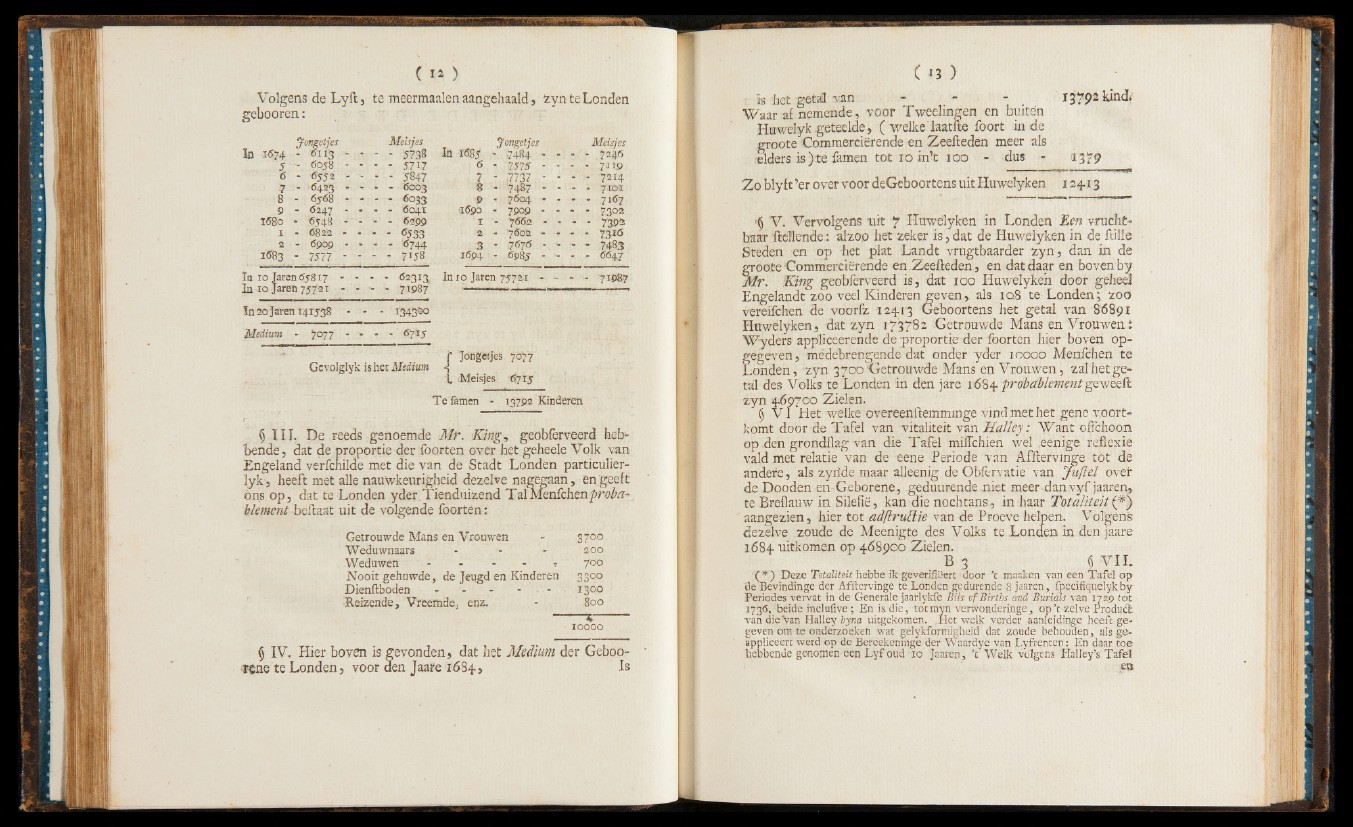 ( 12 )
Volgens de Lyſt, te meermaalen aangehaald, zyn te Londen
gebooren:
Jongetjes Meisjes Jongetjes Meisjes
In 1674 - 6113 - - - - 5738 In 1685 - 7484 - - - - 7246
5 - 6058 - - - - 5717 6 - 7575 - - - - 7119
6 - 6552 - - - - 5847 7 - 7737 - - - - 7214
7 - 6423 - - - - 6003 8 - 7487 - - - - 7101
8 - 6568 - - - - 6033 9 - 7604 - - - - 7167
9 - 6247 - - - - 6041 1690 - 7909 - - - - 7302
1680 - 6548 - - - - 6299 1 - 7662 - - - - 7392
1 - 6822 - - - - 6533 2 - 7602 - - - - 7316
2 - 6909 - - - - 6744 3 - 7676 - - - - 7483
1683 - 7577 - - - - 7158 1694 - 6985 - - - - 6647
In 10 Jaren 65817 - - - - 62313 In 10 Jaren 75721 - - - - 71987
In 10 Jaren 75721 - - - - 71987
In 20 Jaren 141538 - - - 134300
Medium - 7077 - - - - 6715
Gevolglyk is het Medium { Jongetjes 7077
Meisjes 6715
Te ſamen - 13792 Kinderen
§ III. De reeds genoemde Mr. King, geobſerveerd heb-
bende, dat de proportie der ſoorten over het geheele Volk van
Engeland verſchilde met die van de Stadt Londen particulier-
lyk, heeft met alle nauwkeurigheid dezelve nagegaan, en geeft
ons op, dat te Londen yder Tienduizend Tal Menſchen proba-
blement beſtaat uit de volgende ſoorten:
Getrouwde Mans en Vrouwen - 3700
Weduwnaars - - - 200
Weduwen - - - - - 700
Nooit gehuwde, de Jeugd en Kinderen 3300
Dienſtboden - - - - - 1300
Reizende, Vreemde, enz. - 800
10000
§ IV. Hier boven is gevonden, dat het Medium der Geboo-
rene te Londen, voor den Jaare 1684, Is
( 13 )
is het getal van - - - 13792 kind.
Waar af nemende, voor Tweelingen en buiten
Huwelyk geteelde, (welke laatſte ſoort in de
groote Commerciërende en Zeeſteden meer als
elders is) te ſamen tot 10 in't 100 - dus - 1379
Zo blyft 'er over voor de Geboortens uit Huwelyken 12413
§ V. Vervolgens uit 7 Huwelyken in Londen Een vrucht-
baar ſtellende: alzoo het zeker is, dat de Huwelyken in de ſtille
Steden en op het plat Landt vrugtbaarder zyn, dan in de
groote Commerciërende en Zeeſteden, en dat daar en boven by
Mr. King geobſerveerd is, dat 100 Huwelyken door geheel
Engelandt zoo veel Kinderen geven, als 108 te Londen; zoo
vereiſchen de voorſz 12413 Geboortens het getal van 86891
Huwelyken, dat zyn 173782 Getrouwde Mans en Vrouwen:
Wyders appliceerende de proportie der ſoorten hier boven op-
gegeven, medebrengende dat onder yder 10000 Menſchen te
Londen, zyn 3700 Getrouwde Mans en Vrouwen, zal het ge-
tal des Volks te Londen in den jare 1684 probablement geweeſt
zyn 469700 Zielen.
§ VI Het welke overeenſtemminge vind met het gene voort-
komt door de Tafel van vitaliteit van Halley: Want offchoon
op den grondſlag van die Tafel miſſchien wel eenige reflexie
vald met relatie van de eene Periode van Afſtervinge tot de
andere, als zynde maar alleenig de Obſervatie van Juſtel over
de Dooden en Geborene, geduurende niet meer dan vyf jaaren,
te Breſlauw in Sileſië, kan die nochtans, in haar Totaliteit (*)
aangezien, hier tot adſtructie van de Proeve helpen. Volgens
dezelve zoude de Meenigte des Volks te Londen in den jaare
1684 uitkomen op 468900 Zielen.
B 3 § VII.
(*) Deze Totaliteit hebbe ik geverifiëert door 't maaken van een Tafel op
de Bevindinge der Afſtervinge te Londen gedurende 8 jaaren, ſpecifiquelyk by
Periodes vervat in de Generale jaarlykſe Bils of Births and Burials van 1729 tot
1736, beide incluſive; En is die, tot myn verwonderinge, op 't zelve Product
van die van Halley byna uitgekomen. Het welk verder aanleidinge heeft ge-
geven om te onderzoeken wat gelykformigheid dat zoude behouden, als ge-
appliceert werd op de Bereekeninge der Waardye van Lyfrenten: En daar toe
hebbende genomen een Lyf oud 10 Jaaren, 't Welk volgens Halley's Tafel
en